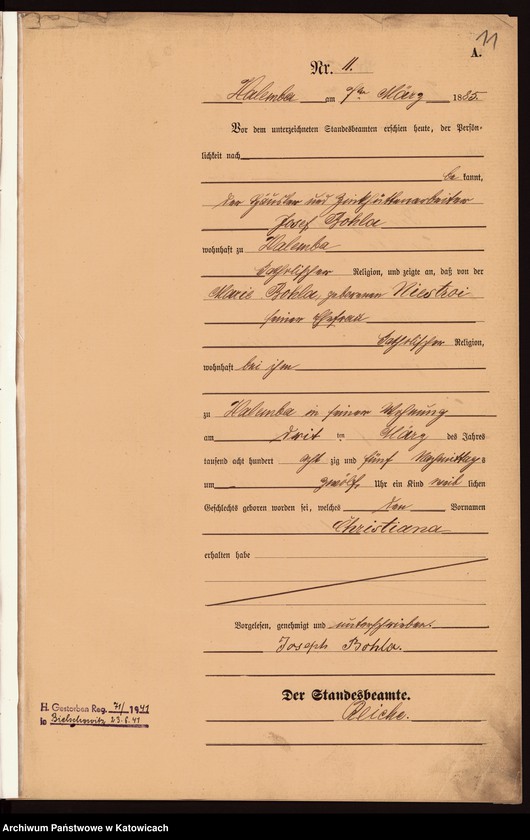 11
A.
Nr. 11.
Halemba am März 1885.
Vor dem unterzeichneten Standesbeamten erschien heute, der Persön-
lichkeit nach
be kannt,
der Häusler und Zinkhüttenarbeiter
Josef Bohla
wohnhaft zu Halemba
katholischer Religion, und zeigte an, daß von der
Marie Bohla, geborenen Niestroi
seiner Ehefrau
katholischer Religion,
wohnhaft bei ihm
zu Halemba in seiner Wohnung
am ten März des Jahres
tausend acht hundert acht zig und fünf Nachmittags
um zwölf Uhr ein Kind weib lichen
Geschlechts geboren worden sei, welches den Vornamen
Christiana
erhalten habe
Vorgelesen, genehmigt und unterschrieben.
Joseph Bohla.
Der Standesbeamte.
H. Gestorben Reg. 71/1941
to Bielschowitz 23.6.41
Archiwum Państwowe w Katowicach